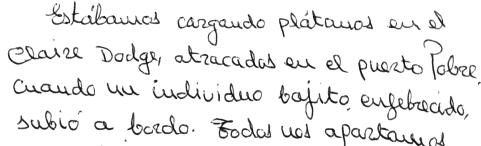 Estábamos cargando plátanos en el
Claire Dodge, atracados en el puerto Pobre.
Cuando un individuo bajito, enfebrecido,
subió a bordo. Todos nos apartamos